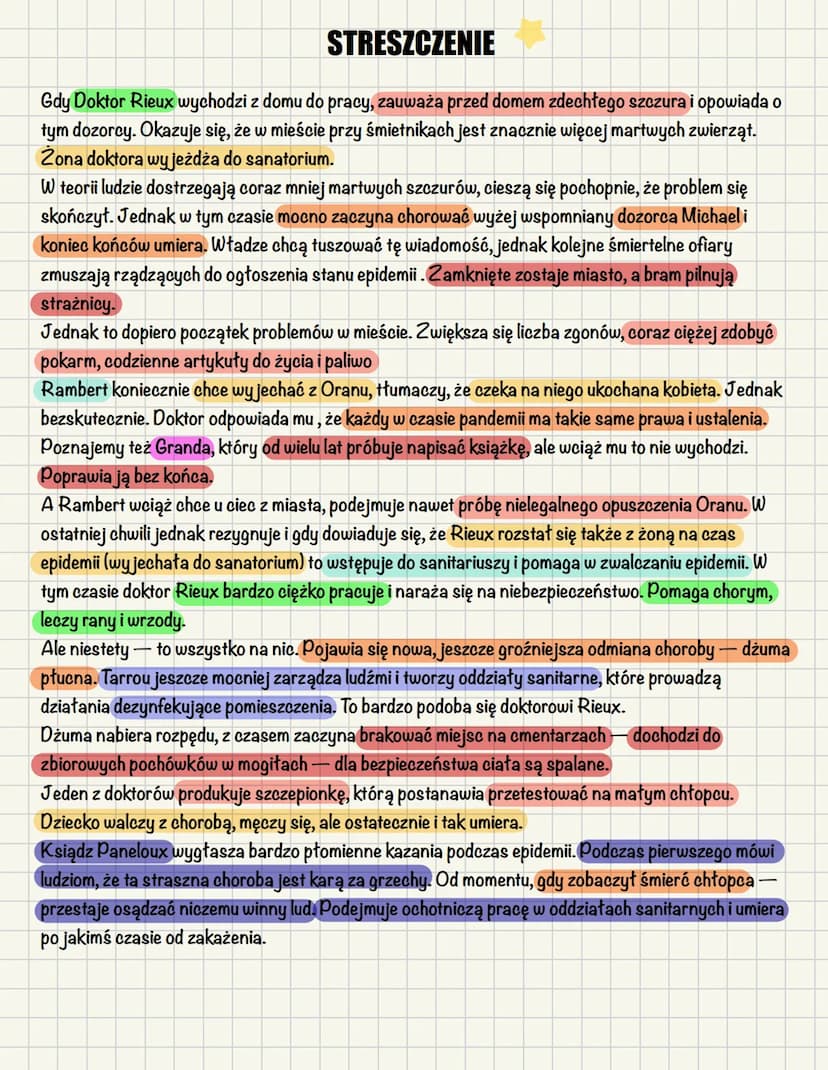 STRESZCZENIE
Gdy Doktor Rieux wychodzi z domu do pracy, zauważa przed domem zdechłego szczura i opowiada o
tym dozorcy. Okazuje się, że w mieście przy śmietnikach jest znacznie więcej martwych zwierząt.
Żona doktora wyjeżdża do sanatorium.
W teorii ludzie dostrzegają coraz mniej martwych szczurów, cieszą się pochopnie, że problem się
skończył. Jednak w tym czasie mocno zaczyna chorować wyżej wspomniany dozorca Michael i
koniec końców umiera. Władze chcą tuszować tę wiadomość, jednak kolejne śmiertelne ofiary
zmuszają rządzących do ogłoszenia stanu epidemii . Zamknięte zostaje miasto, a bram pilnują
strażnicy.
Jednak to dopiero początek problemów w mieście. Zwiększa się liczba zgonów, coraz ciężej zdobyć
pokarm, codzienne artykuły do życia i paliwo
Rambert koniecznie chce wyjechać z Oranu, tłumaczy, że czeka na niego ukochana kobieta. Jednak
bezskutecznie. Doktor odpowiada mu , że każdy w czasie pandemii ma takie same prawa i ustalenia.
Poznajemy też Granda, który od wielu lat próbuje napisać książkę, ale wciąż mu to nie wychodzi.
Poprawia ją bez końca.
A Rambert wciąż chce u ciec z miasta, podejmuje nawet próbę nielegalnego opuszczenia Oranu. W
ostatniej chwili jednak rezygnuje i gdy dowiaduje się, że Rieux rozstał się także z żoną na czas
epidemii (wyjechała do sanatorium) to wstępuje do sanitariuszy i pomaga w zwalczaniu epidemii. W
tym czasie doktor Rieux bardzo ciężko pracuje i naraża się na niebezpieczeństwo. Pomaga chorym,
leczy rany i wrzody.
Ale niestety — to wszystko na nic. Pojawia się nowa, jeszcze groźniejsza odmiana choroby — dżuma
płucna. Tarrou jeszcze mocniej zarządza ludźmi i tworzy oddziały sanitarne, które prowadzą
działania dezynfekujące pomieszczenia. To bardzo podoba się doktorowi Rieux.
Dżuma nabiera rozpędu, z czasem zaczyna brakować miejsc na cmentarzach — dochodzi do
zbiorowych pochówków w mogiłach — dla bezpieczeństwa ciała są spalane.
Jeden z doktorów produkuje szczepionkę, którą postanawia przetestować na małym chłopcu.
Dziecko walczy z chorobą, męczy się, ale ostatecznie i tak umiera.
Ksiądz Paneloux wygłasza bardzo płomienne kazania podczas epidemii. Podczas pierwszego mówi
ludziom, że ta straszna choroba jest karą za grzechy. Od momentu, gdy zobaczył śmierć chłopca —
przestaje osądzać niczemu winny lud. Podejmuje ochotniczą pracę w oddziałach sanitarnych i umiera
po jakimś czasie od zakażenia.